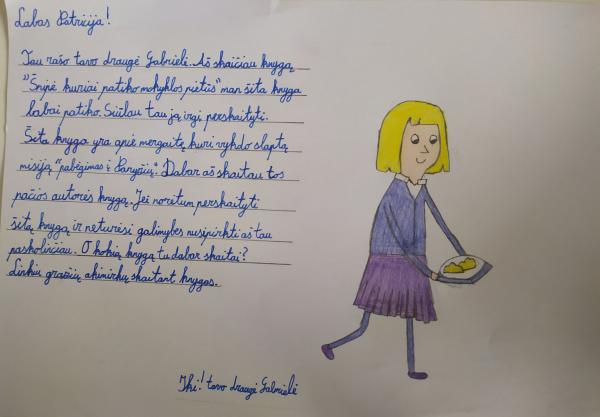 Labas Patricija!
Tau rašo tavo draugė Gabrielė. Aš skaičiau knygą
"Šnipė kuriai patiko mokyklos pietūs" man šita knyga
labai patiko. Siūlau tau ją irgi perskaityti.
Šita knyga yra apie mergaitę kuri vykdo slaptą
misiją "pabėgimas į Paryžių". Dabar aš skaitau tos
pačios autorės knygą. Jei norėtum perskaityti
šitą knygą ir neturėsi galimybės nusipirkti aš tau
paskolinčiau. O kokią knygą tu dabar skaitai?
Linkiu gražių akimirkų skaitant knygas.
Iki! tavo draugė Gabrielė